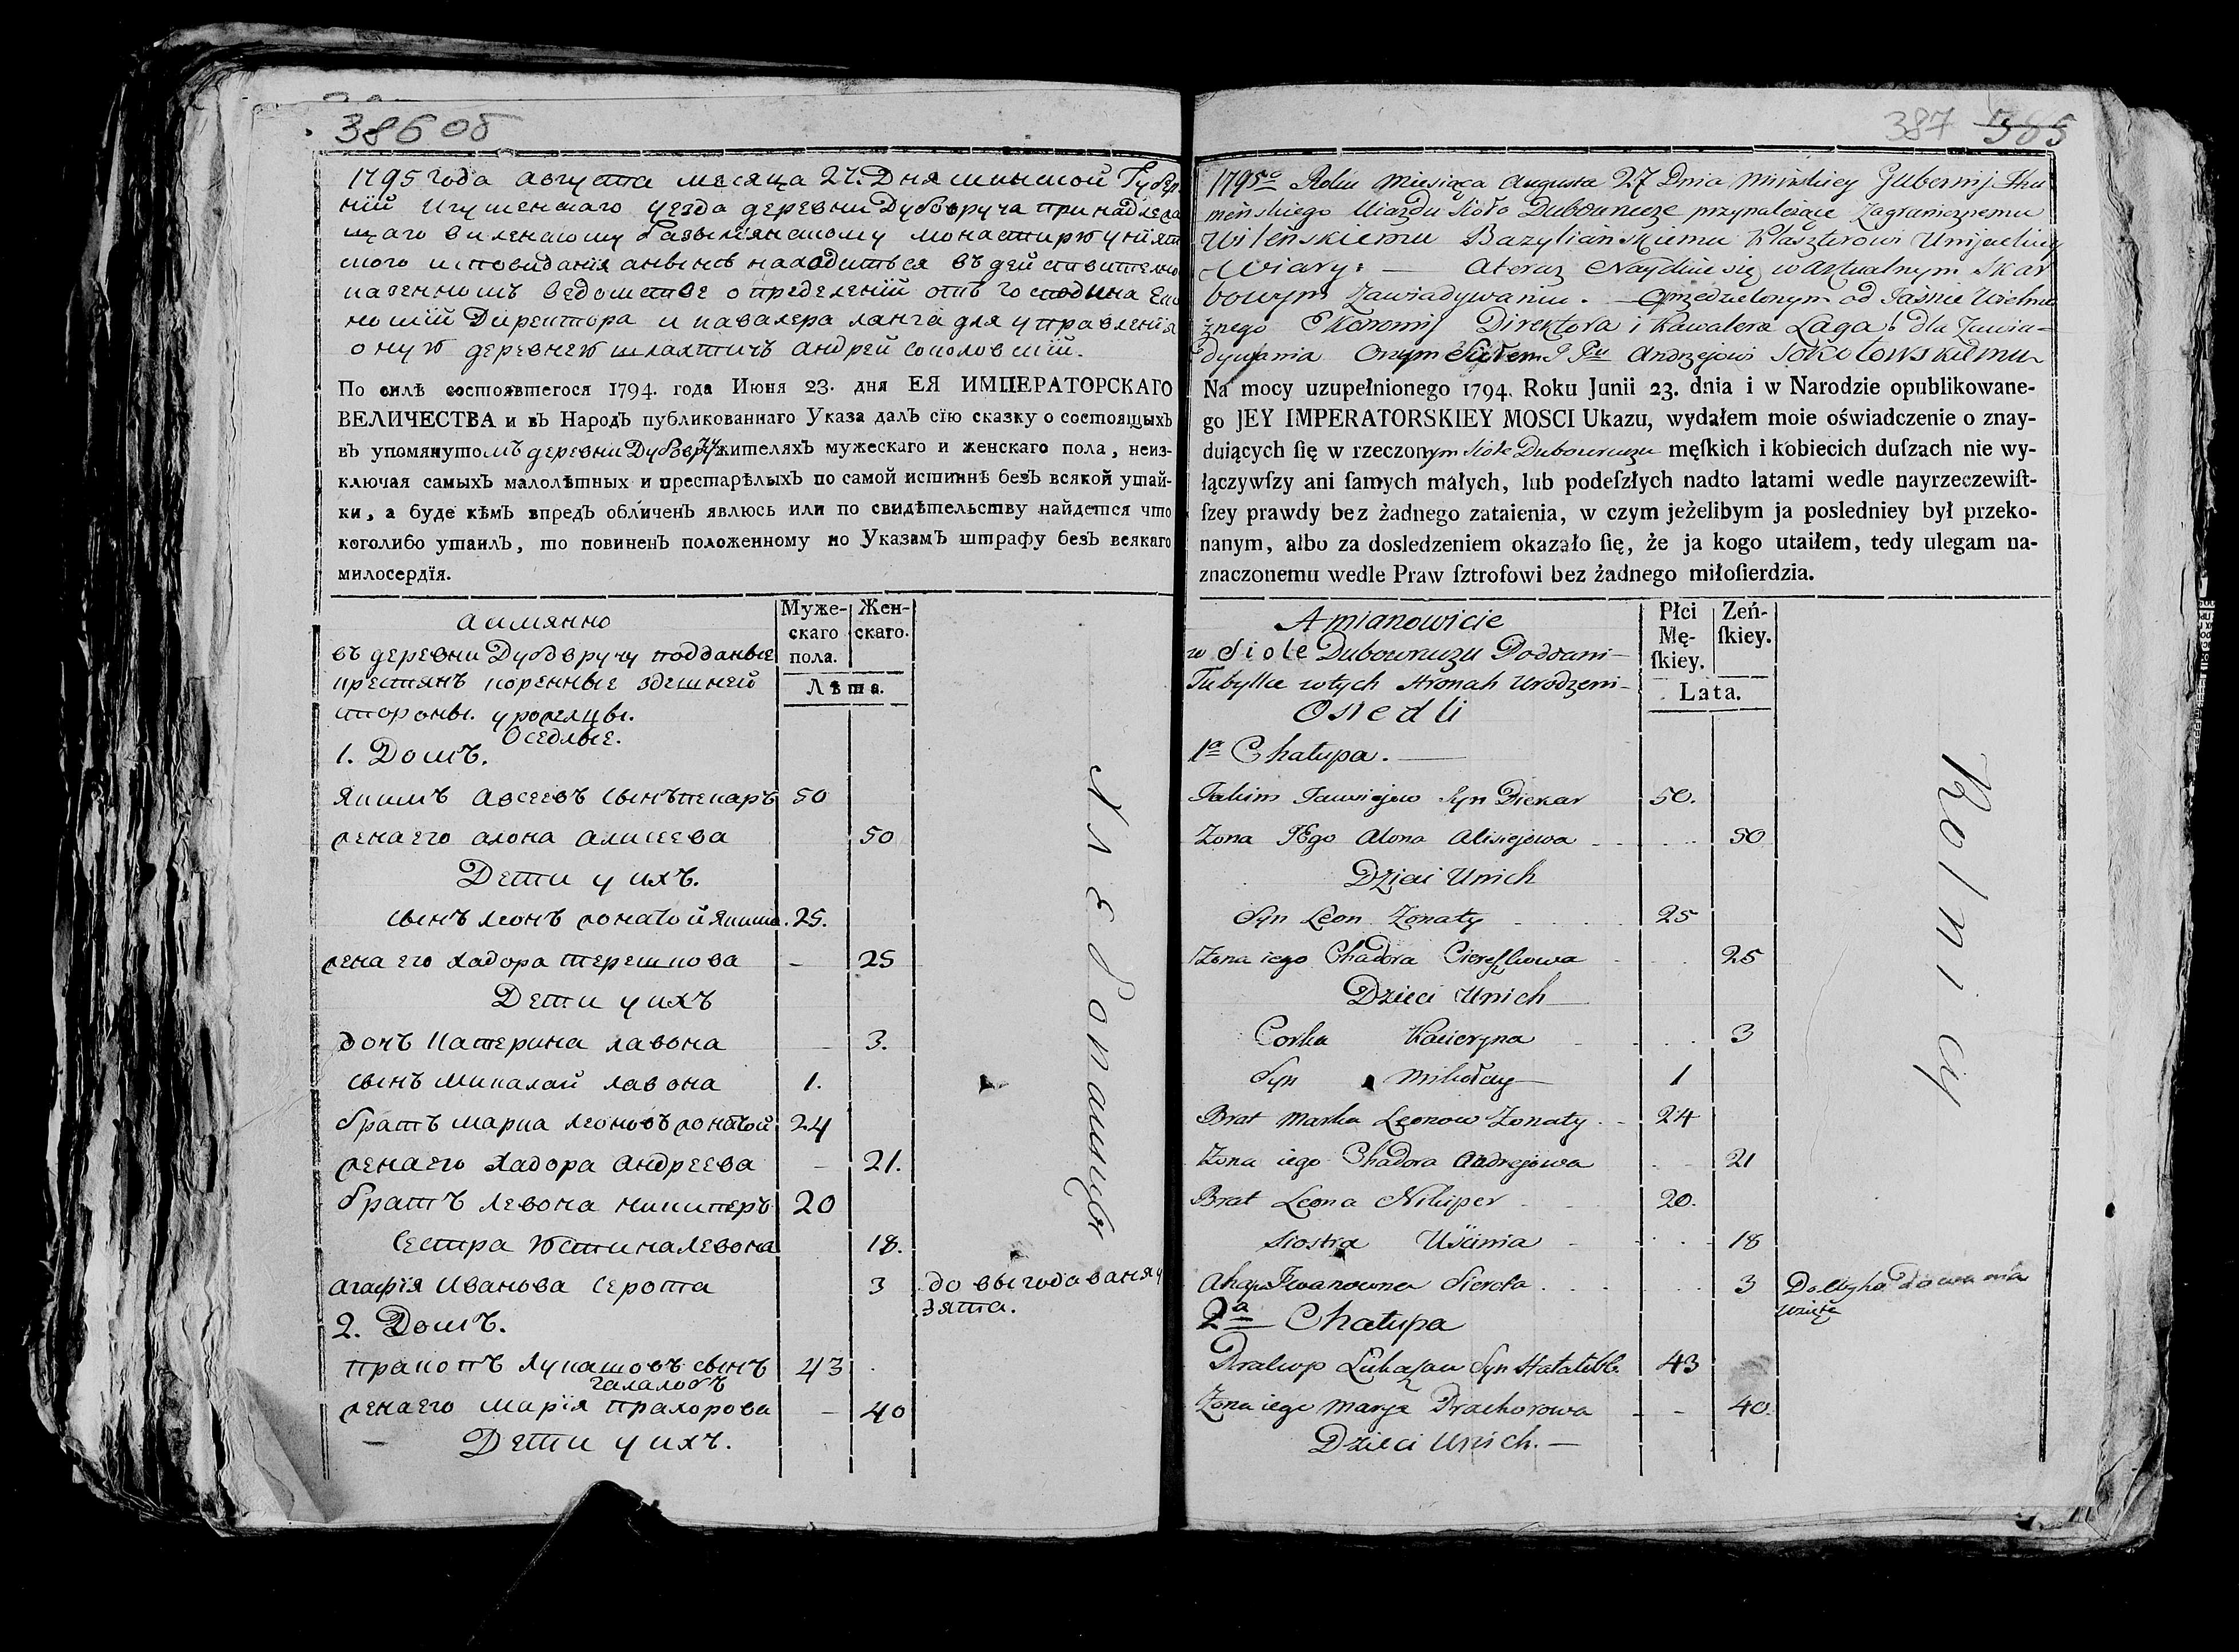 386 об
1795 года августа месяца 27. Дня минской Губер
ний игуменскаго уезда деревни Дубовруча принадлежа
щаго виленскому базылианскому монастирю унѣят
ского исповидания а нынѣ находиться въ действително
казенномъ ведомстве о пределений отъ господина Еко
номій Директора и кавалера ланга для управления
оную деревнею шляхтичъ андрей соколовский.
По силѣ состоявшегося 1794. года Июня 23. дня ЕЯ ИМПЕРАТОРСКАГО
ВЕЛИЧЕСТВА и въ Народъ публикованнаго Указа далъ сїю сказку о состоящыхъ
въ упомянутомъ деревни Дубовручу жителяхъ мужескаго и женскаго пола, неиз-
ключая самыхъ малолѣтныхъ и престарѣлыхъ по самой истиннѣ безъ всякой утай-
ки, а буде кѣмъ впредъ обличенъ явлюсь или по свидѣтельству найдется что
коголибо утаилъ, то повиненъ положенному по Указамъ штрафу безъ всякаго
милосердїя.
аимянно
Муже-скаго пола.
Жен-скаго.
Лѣта.
въ деревни Дубовручу подданые
крестянъ коренные здешней
стороны. уроженцы.
Оседлые.
1. Домъ.
якимъ авсеевъ сынъ пекаръ 50
жена его алона алисеева 50
Дети у ихъ.
сынъ леонъ жонатой якима. 25.
жена его хадора терешкова - 25
Дети у ихъ
дочъ катерина лавона - 3.
сынъ микалай лавона 1.
братъ марка леоновъ жонатой 24
жена его хадора андреева - 21.
братъ левона никиперъ 20
сестра юстина левона 18.
агафїя иванова серота 3 до выгодаваня у
зятя.
2. Домъ.
пракопъ лукашовъ сынъ 43
галалобъ
жена его марїя прахорова - 40
Дети у ихъ.
хлебопашцы
387 385
1795º Roku Miesiąca Augusta 27 Dnia Minskiey Gubernij Ihu
meńskiego Uiazdu Sioło Dubowrucze przynależące Zagranicznemu
Wileńskiemu Bazyliańskiemu Klasztorowi Unijackiey
Wiary: — A teraz Nayduie się w Aktualnym Skar
bowym Zawiadywaniu. — Oprzedzielonym od Jaśnie Wielmo
żnego Ekonomij Direktora i Kawalera Laga! dla Zawia-
dywania Onym Siołem J Pu Andrzejowi Sokołowskiemu
Na mocy uzupełnionego 1794. Roku Junii 23. dnia i w Narodzie opublikowane-
go JEY IMPERATORSKIEY MOSCI Ukazu, wydałem moie oświadczenie o znay-
duiących ſię w rzeczonym Siole Dubowruczu męſkich i kobiecich duſzach nie wy-
łączywſzy ani ſamych małych, lub podeſzłych nadto latami wedle nayrzeczewiſt-
ſzey prawdy bez żadnego zataienia, w czym jeżelibym ja posledniey był przeko-
nanym, albo za dosledzeniem okazało ſię, że ja kogo utaiłem, tedy ulegam na-
znaczonemu wedle Praw ſztrofowi bez żadnego miłoſierdzia.
Amianowicie
Płci Mę-ſkiey.
Zeń-ſkiey.
Lata.
w Siole Dubowruczu Poddani—
Tubylce w tych Stronah Urodzeni—
Osiedli
1ª Chałupa. —
Jakim Jawsiejow Syn Piekar 50.
Zona JEgo Alona Alisiejowa 50
Dzieci Unich
Syn Leon Zonaty 25
Zona iego Chadora Cierešzkowa 25
Dzieci Unich
Corka Kacieryna 3
Syn Mikołay 1
Brat Marka Leonow Zonaty 24
Zona iego Chadora Andrejowa 21
Brat Leona Nikiper 20.
Siostra Uścinia 18
Ahapa Iwanowna Sierota 3 Do Wyhadawania
Uzięcia
2ª Chałupa
Prakop Łukaszow Syn Hałałobb. 43
Zona iego Marya Prachorowa - - 40.
Dzieci Unich. —
Rolnicy